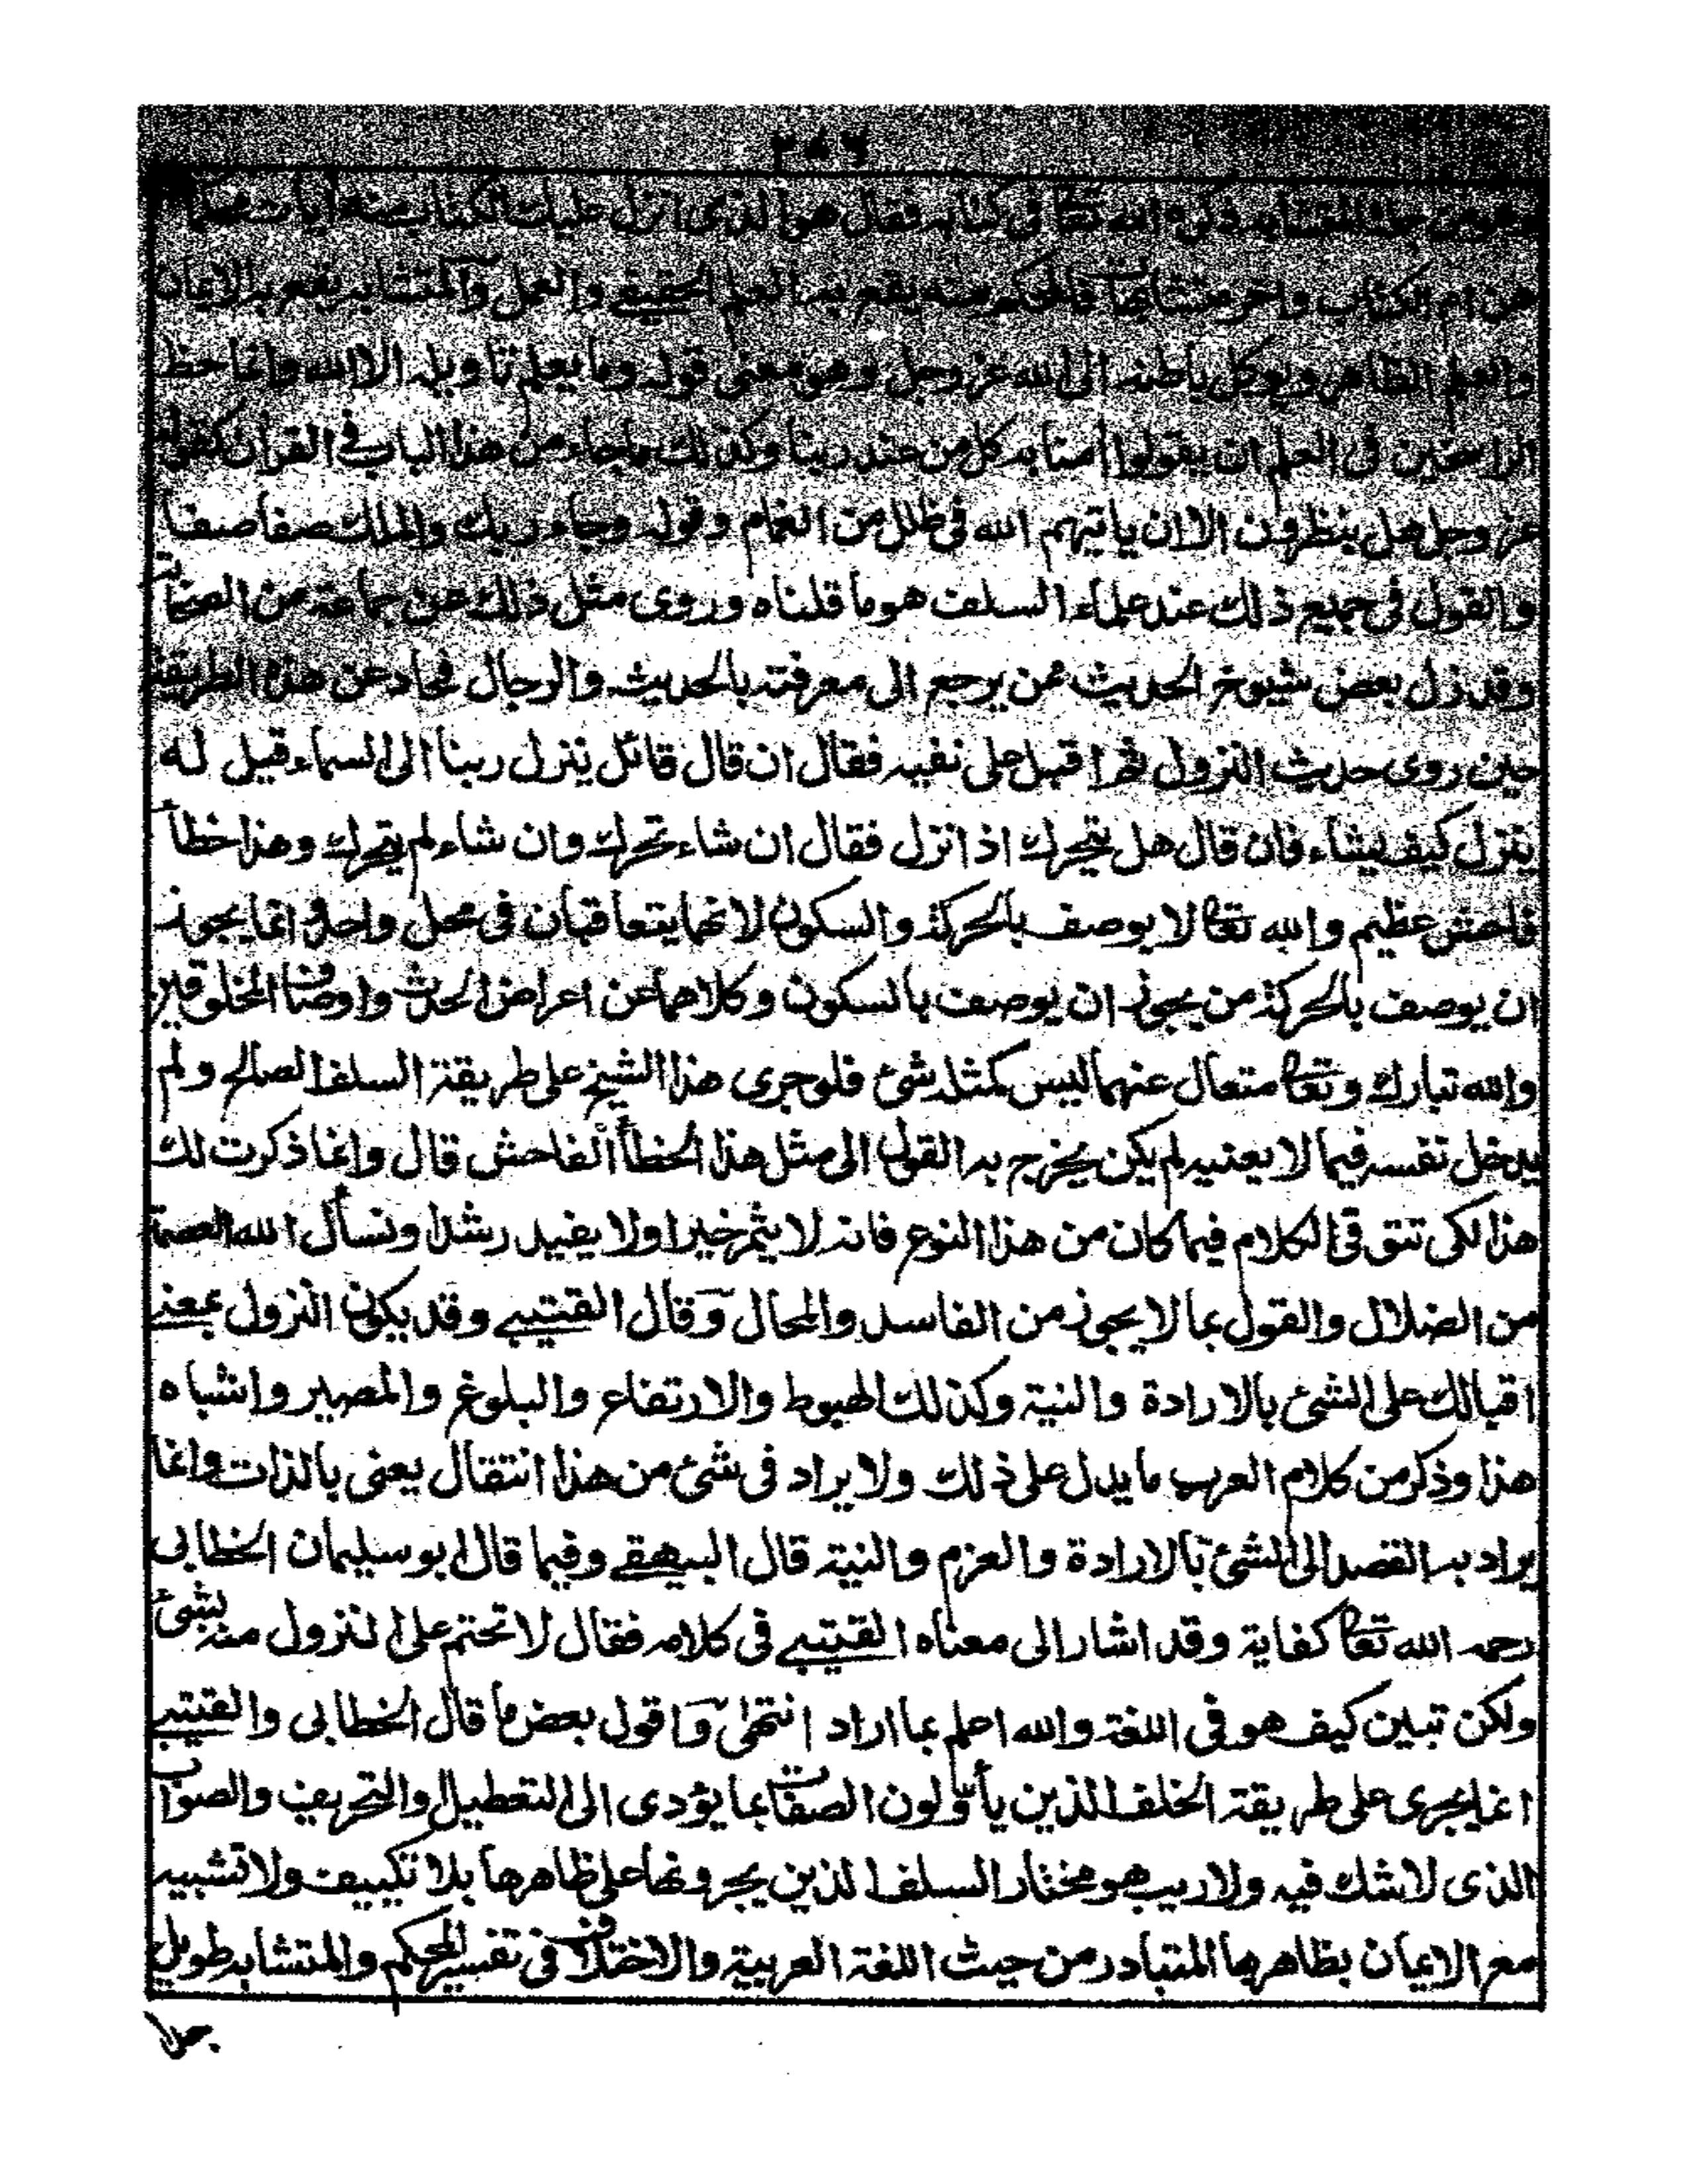 ٣٥٦
وهو من جملة المتشابه ذكره الله تعا في كتابه فقال هو الذى انزل عليك الكتاب منه ايات محكمات
هن ام الكتاب واخر متشابهات فالمحكم منه يقع به العلم الحقيقے والعمل والمتشابه يقع به الايمان
والعلم الظاهر ويوكل باطنه الى الله عز وجل وهو معنى قوله وما يعلم تاويله الا الله وانما حظ
الراسخين فى العلم ان يقولوا امنا به كل من عند ربنا وكذلك ما جاء من هذا الباب فے القران كقوله
عز وجل هل ينظرون الا ان ياتيهم الله فى ظلل من الغمام وقوله وجاء ربك والملك صفا صفا
والقول فى جميع ذلك عند علماء السلف هو ما قلناه وروى مثل ذلك عن جماعة من الصحابة
وقد زل بعض شيوخ الحديث ممن يرجع الى معرفته بالحديث والرجال فحاد عن هذه الطريقة
حين روى حديث النزول ثم اقبل على نفسه فقال ان قال قائل ينزل ربنا الى السماء قيل له
ينزل كيف يشاء فان قال هل يتحرك اذا نزل فقال ان شاء تحرك وان شاء لم يتحرك وهذا خطأ
فاحش عظيم والله تعا لا يوصف بالحركة والسكون لانهما يتعاقبان فى محل واحد وانما يجوز
ان يوصف بالحركة من يجوز ان يوصف بالسكون وكلاهما عن اعراض الحدث واوصاف المخلوقين
والله تبارك وتعا متعال عنهما ليس كمثله شئ فلو جرى هذا الشيخ على طريقة السلف الصالح ولم
يدخل نفسه فيما لا يعنيه لم يكن يخرج به القول الى مثل هذا الخطأ الفاحش قال وانما ذكرت لك
هذا لكى تتوقى الكلام فيما كان من هذا النوع فانه لا يثمر خيرا ولا يفيد رشدا ونسأل الله العصمة
من الضلال والقول بما لا يجوز من الفاسد والمحال وقال القتيبے وقد يكون النزول بمعنے
اقبالك على الشئ بالارادة والنية وكذلك الهبوط والارتفاع والبلوغ والمصير واشباه
هذا وذكر من كلام العرب ما يدل على ذلك ولا يراد فى شئ من هذا انتقال يعنى بالذات وانما
يراد به القصد الى الشئ بالارادة والعزم والنية قال البيهقے وفيما قال ابو سليمان الخطابى
رحمه الله تعا كفاية وقد اشار الى معناه القتيبے فى كلامه فقال لا تحتم على النزول منه بشئ
ولكن تبين كيف هو فى اللغة والله اعلم بما اراد انتهى واقول بعض ما قال الخطابى والقتيبے
انما يجرى على طريقة الخلف الذين يأولون الصفات بما يؤدى الى التعطيل والتحريف والصواب
الذى لا شك فيه ولا ريب هو مختار السلف الذين يجرونها على ظاهرها بلا تكييف ولا تشبيه
مع الايمان بظاهرها المتبادر من حيث اللغة العربية والاختلاف فى تفسير المحكم والمتشابه طويل
جدا